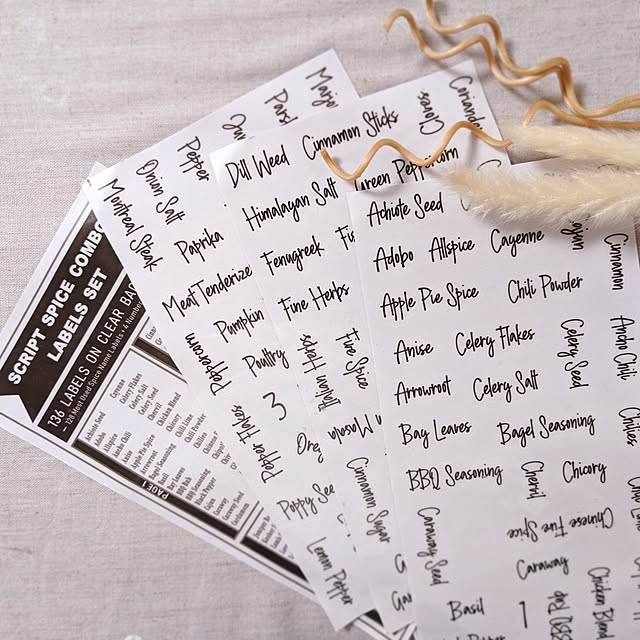 SCRIPT SPICE COMBO
LABELS SET
136 LABELS ON CLEAR
PAGE 1
Achiote Seed
Adobo
Allspice
Anise
Apple Pie Spice
Arrowroot
Bagel Seasoning
Basil
Bay Leaves
BBQ Rub
BBQ Seasoning
Black Pepper
Cajun
Caraway
Cayenne
Celery Flakes
Celery Salt
Celery Seed
Chervil
Chicken Blend
Chicory
Chili Powder
Montreal Steak
Onion Salt
Pepper
Paprika
Meat Tenderize
Peppercorn
Pumpkin
Poultry
Pepper Flakes
3
Poppy See
Lemon Pepper
Dill Weed
Cinnamon Sticks
Cloves
Himalayan Salt
Green Peppercorn
Fenugreek
Fine Herbs
Italian Herbs
Five Spice
Masala
Cinnamon Sugar
Achiote Seed
Adobo
Allspice
Cayenne
Cinnamon
Apple Pie Spice
Chili Powder
Anise
Celery Flakes
Celery Seed
Ancho Chili
Arrowroot
Celery Salt
Bay Leaves
Bagel Seasoning
Chives
BBQ Seasoning
Chervil
Chicory
Caraway Seed
Chinese Five Spice
Caraway
Basil
1
BBQ Rub
Chicken Blend